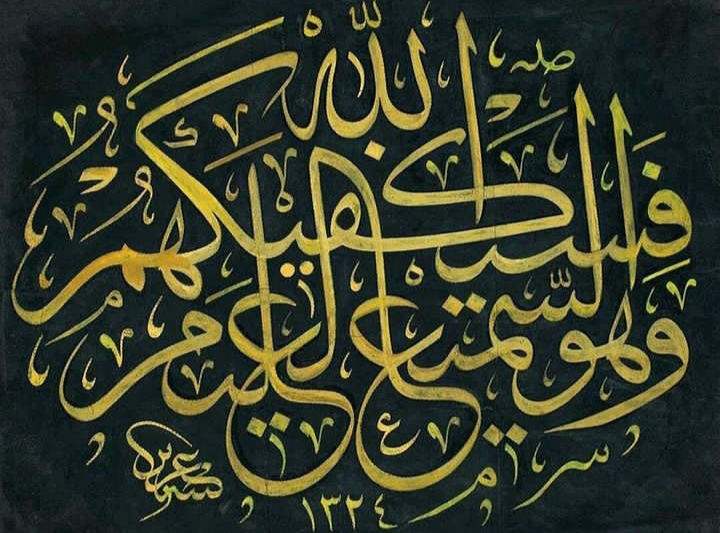 فَسَيَكْفِيكَهُمُ اللَّهُ
وَهُوَ السَّمِيعُ الْعَلِيمُ
١٣٢٤